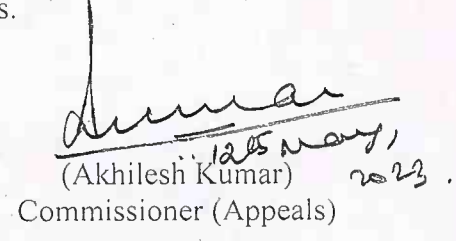 s.
12th May,
(Akhilesh Kumar) 2023.
Commissioner (Appeals)